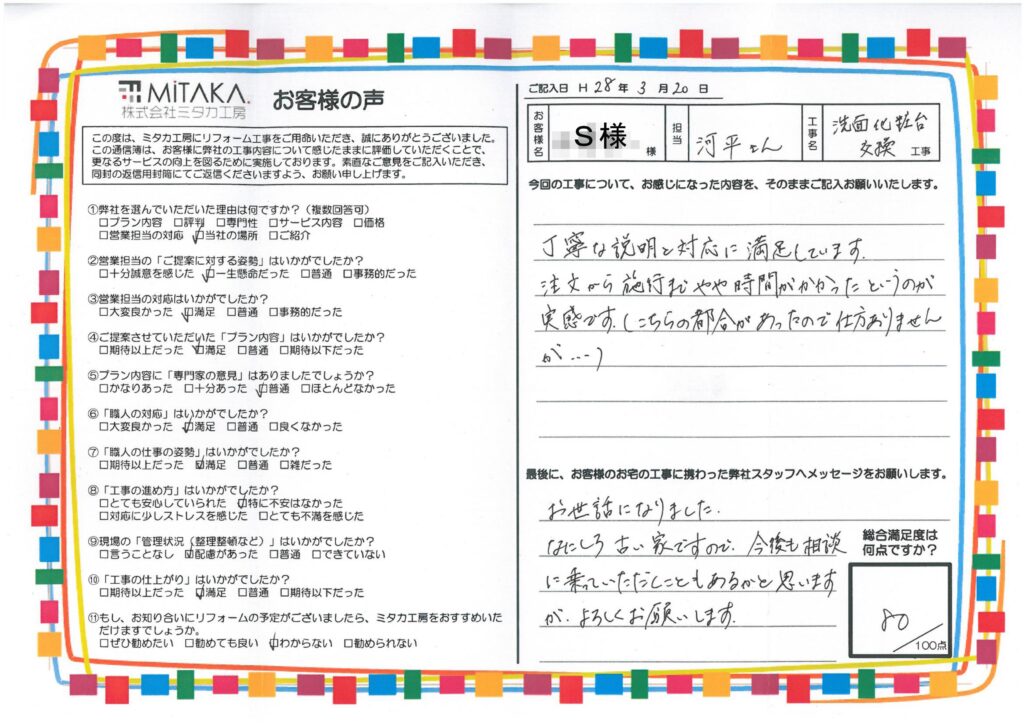 MiTAKA.
株式会社ミタカ工房
お客様の声
この度は、ミタカ工房にリフォーム工事をご用命いただき、誠にありがとうございました。
この通信簿は、お客様に弊社の工事内容について感じたままに評価していただくことで、
更なるサービスの向上を図るために実施しております。素直なご意見をご記入いただき、
同封の返信用封筒にてご返信くださいますよう、お願い申し上げます。
①弊社を選んでいただいた理由は何ですか？（複数回答可）
□プラン内容 □評判 □専門性 □サービス内容 □価格
□営業担当の対応 ☑当社の場所 □ご紹介
②営業担当の「ご提案に対する姿勢」はいかがでしたか？
□十分誠意を感じた ☑一生懸命だった □普通 □事務的だった
③営業担当の対応はいかがでしたか？
□大変良かった ☑満足 □普通 □事務的だった
④ご提案させていただいた「プラン内容」はいかがでしたか？
□期待以上だった ☑満足 □普通 □期待以下だった
⑤プラン内容に「専門家の意見」はありましたでしょうか？
□かなりあった □十分あった ☑普通 □ほとんどなかった
⑥「職人の対応」はいかがでしたか？
□大変良かった ☑満足 □普通 □良くなかった
⑦「職人の仕事の姿勢」はいかがでしたか？
□期待以上だった ☑満足 □普通 □雑だった
⑧「工事の進め方」はいかがでしたか？
□とても安心していられた ☑特に不安はなかった
□対応に少しストレスを感じた □とても不満を感じた
⑨現場の「管理状況（整理整頓など）」はいかがでしたか？
□言うことなし ☑配慮があった □普通 □できていない
⑩「工事の仕上がり」はいかがでしたか？
□期待以上だった ☑満足 □普通 □期待以下だった
⑪もし、お知り合いにリフォームの予定がございましたら、ミタカ工房をおすすめいた
だけますでしょうか。
□ぜひ勧めたい □勧めても良い ☑わからない □勧められない
ご記入日 H 28 年 3 月 20 日
お客様名 S様 様 担当 河平さん 工事名 洗面化粧台
交換 工事
今回の工事について、お感じになった内容を、そのままご記入お願いいたします。
丁寧な説明と対応に満足しています。
注文から施行までやや時間がかかったというのが
実感です。(こちらの都合があったので仕方ありません
が…)
最後に、お客様のお宅の工事に携わった弊社スタッフへメッセージをお願します。
お世話になりました。
なにしろ古い家ですので、今後も相談
に乗っていただくこともあるかと思います
が、よろしくお願いします。
総合満足度は
何点ですか？
80
／100点